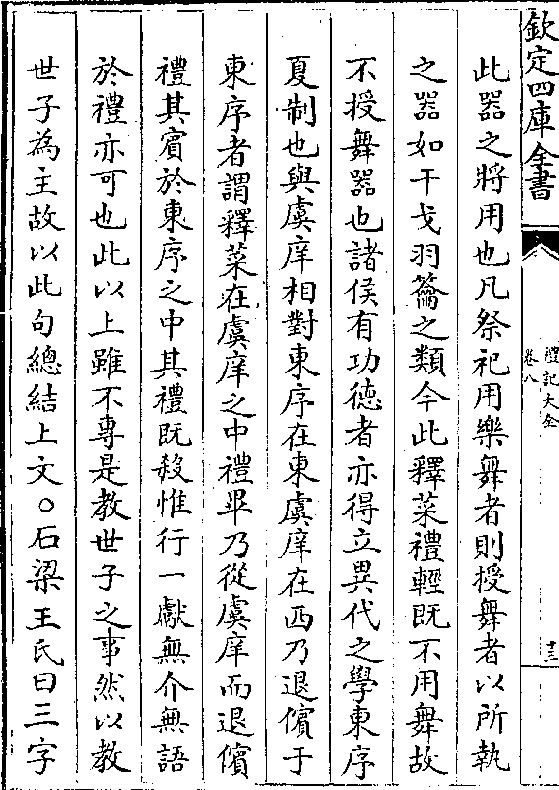 欽定四庫全書
禮記大全
卷八
十三
此器之將用也凡祭祀用樂舞者則授舞者以所執
之器如干戈羽籥之類今此釋菜禮輕既不用舞故
不授舞器也諸侯有功德者亦得立異代之學東序
夏制也與虞庠相對東序在東虞庠在西乃退儐于
東序者謂釋菜在虞庠之中禮畢乃從虞庠而退儐
禮其賓於東序之中其禮既殺惟行一獻無介無語
於禮亦可也此以上雖不專是教世子之事然以教
世子為主故以此句總結上文○石梁王氏曰三字